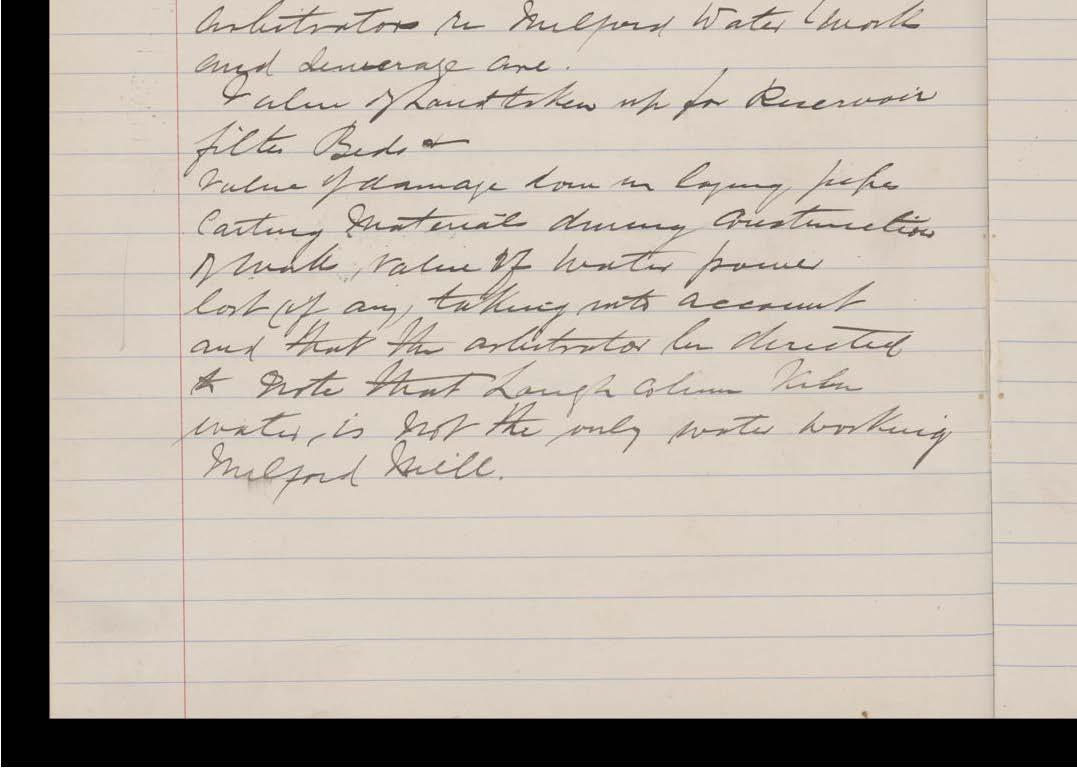 arbitrators re Milford Water Work
and Sewerage are.
Value of Land taken up for Reservoir
filter Beds &
Value of damage done in laying pipes
Carting Materials during Construction
of work, value of water power
lost (if any) taking into account
and that the arbitrator be directed
to Note that Lough Colum
water, is not the only water working
Milford Mill.